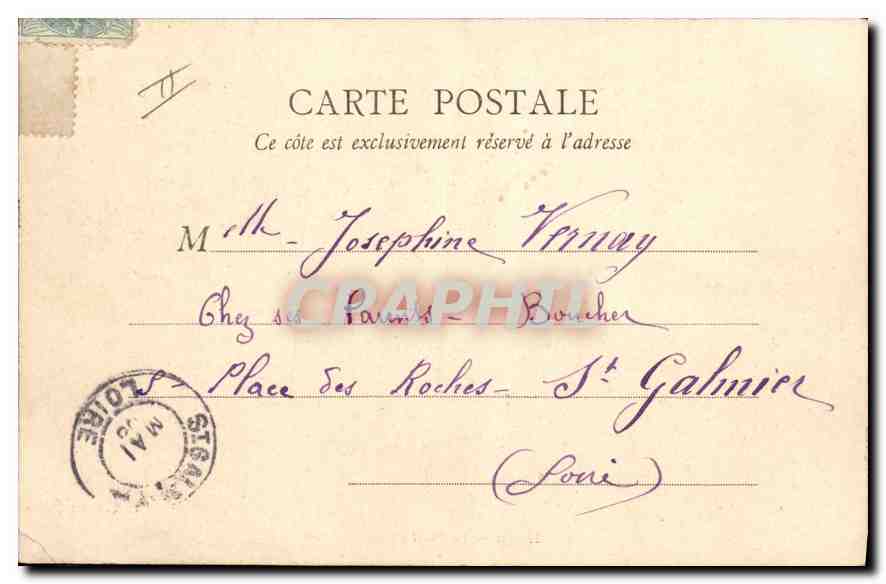 CARTE POSTALE
Ce côte est exclusivement réservé à l'adresse
Melle - Josephine Vernay
Chez ses Parents - Boucher
CRAPHT
S- Place des Roches - St Galmier
(Loire)
LOIRE
MAI
ST GALM